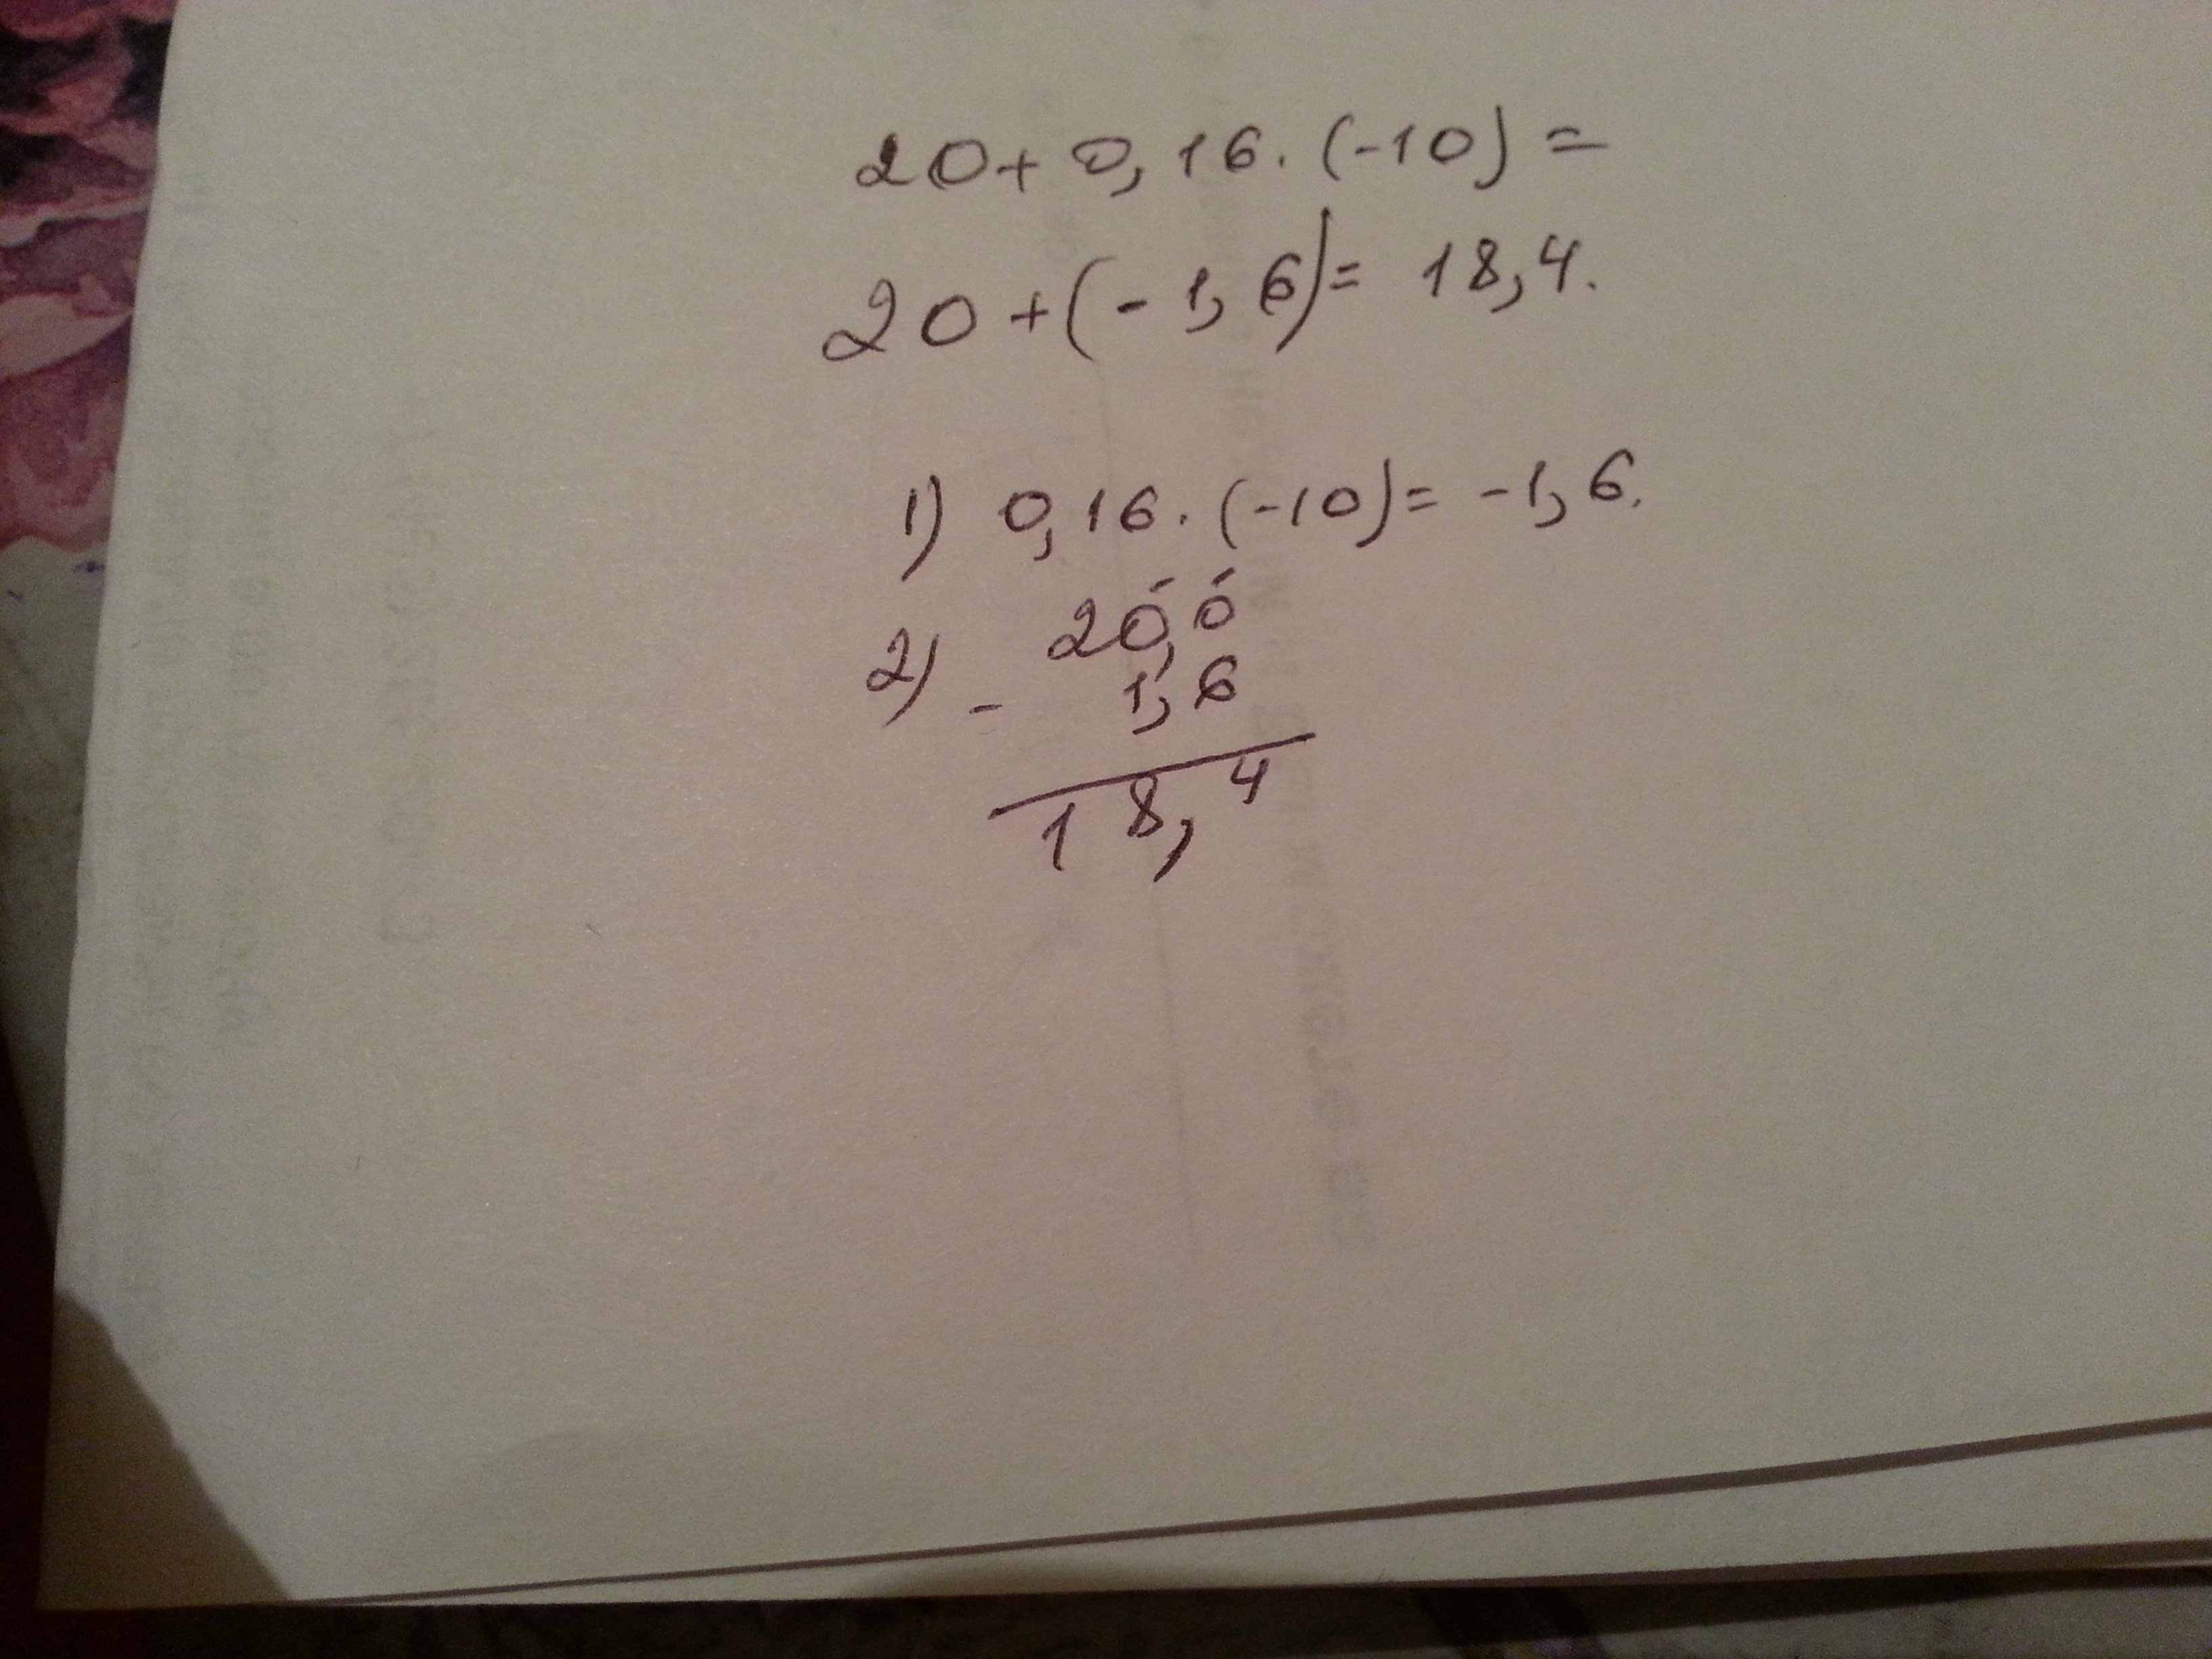 20+0,16.(-10)=
20+(-1,6)= 18,4.
1) 0,16.(-10)= -1,6.
2) - 20,0
1,6
18,4